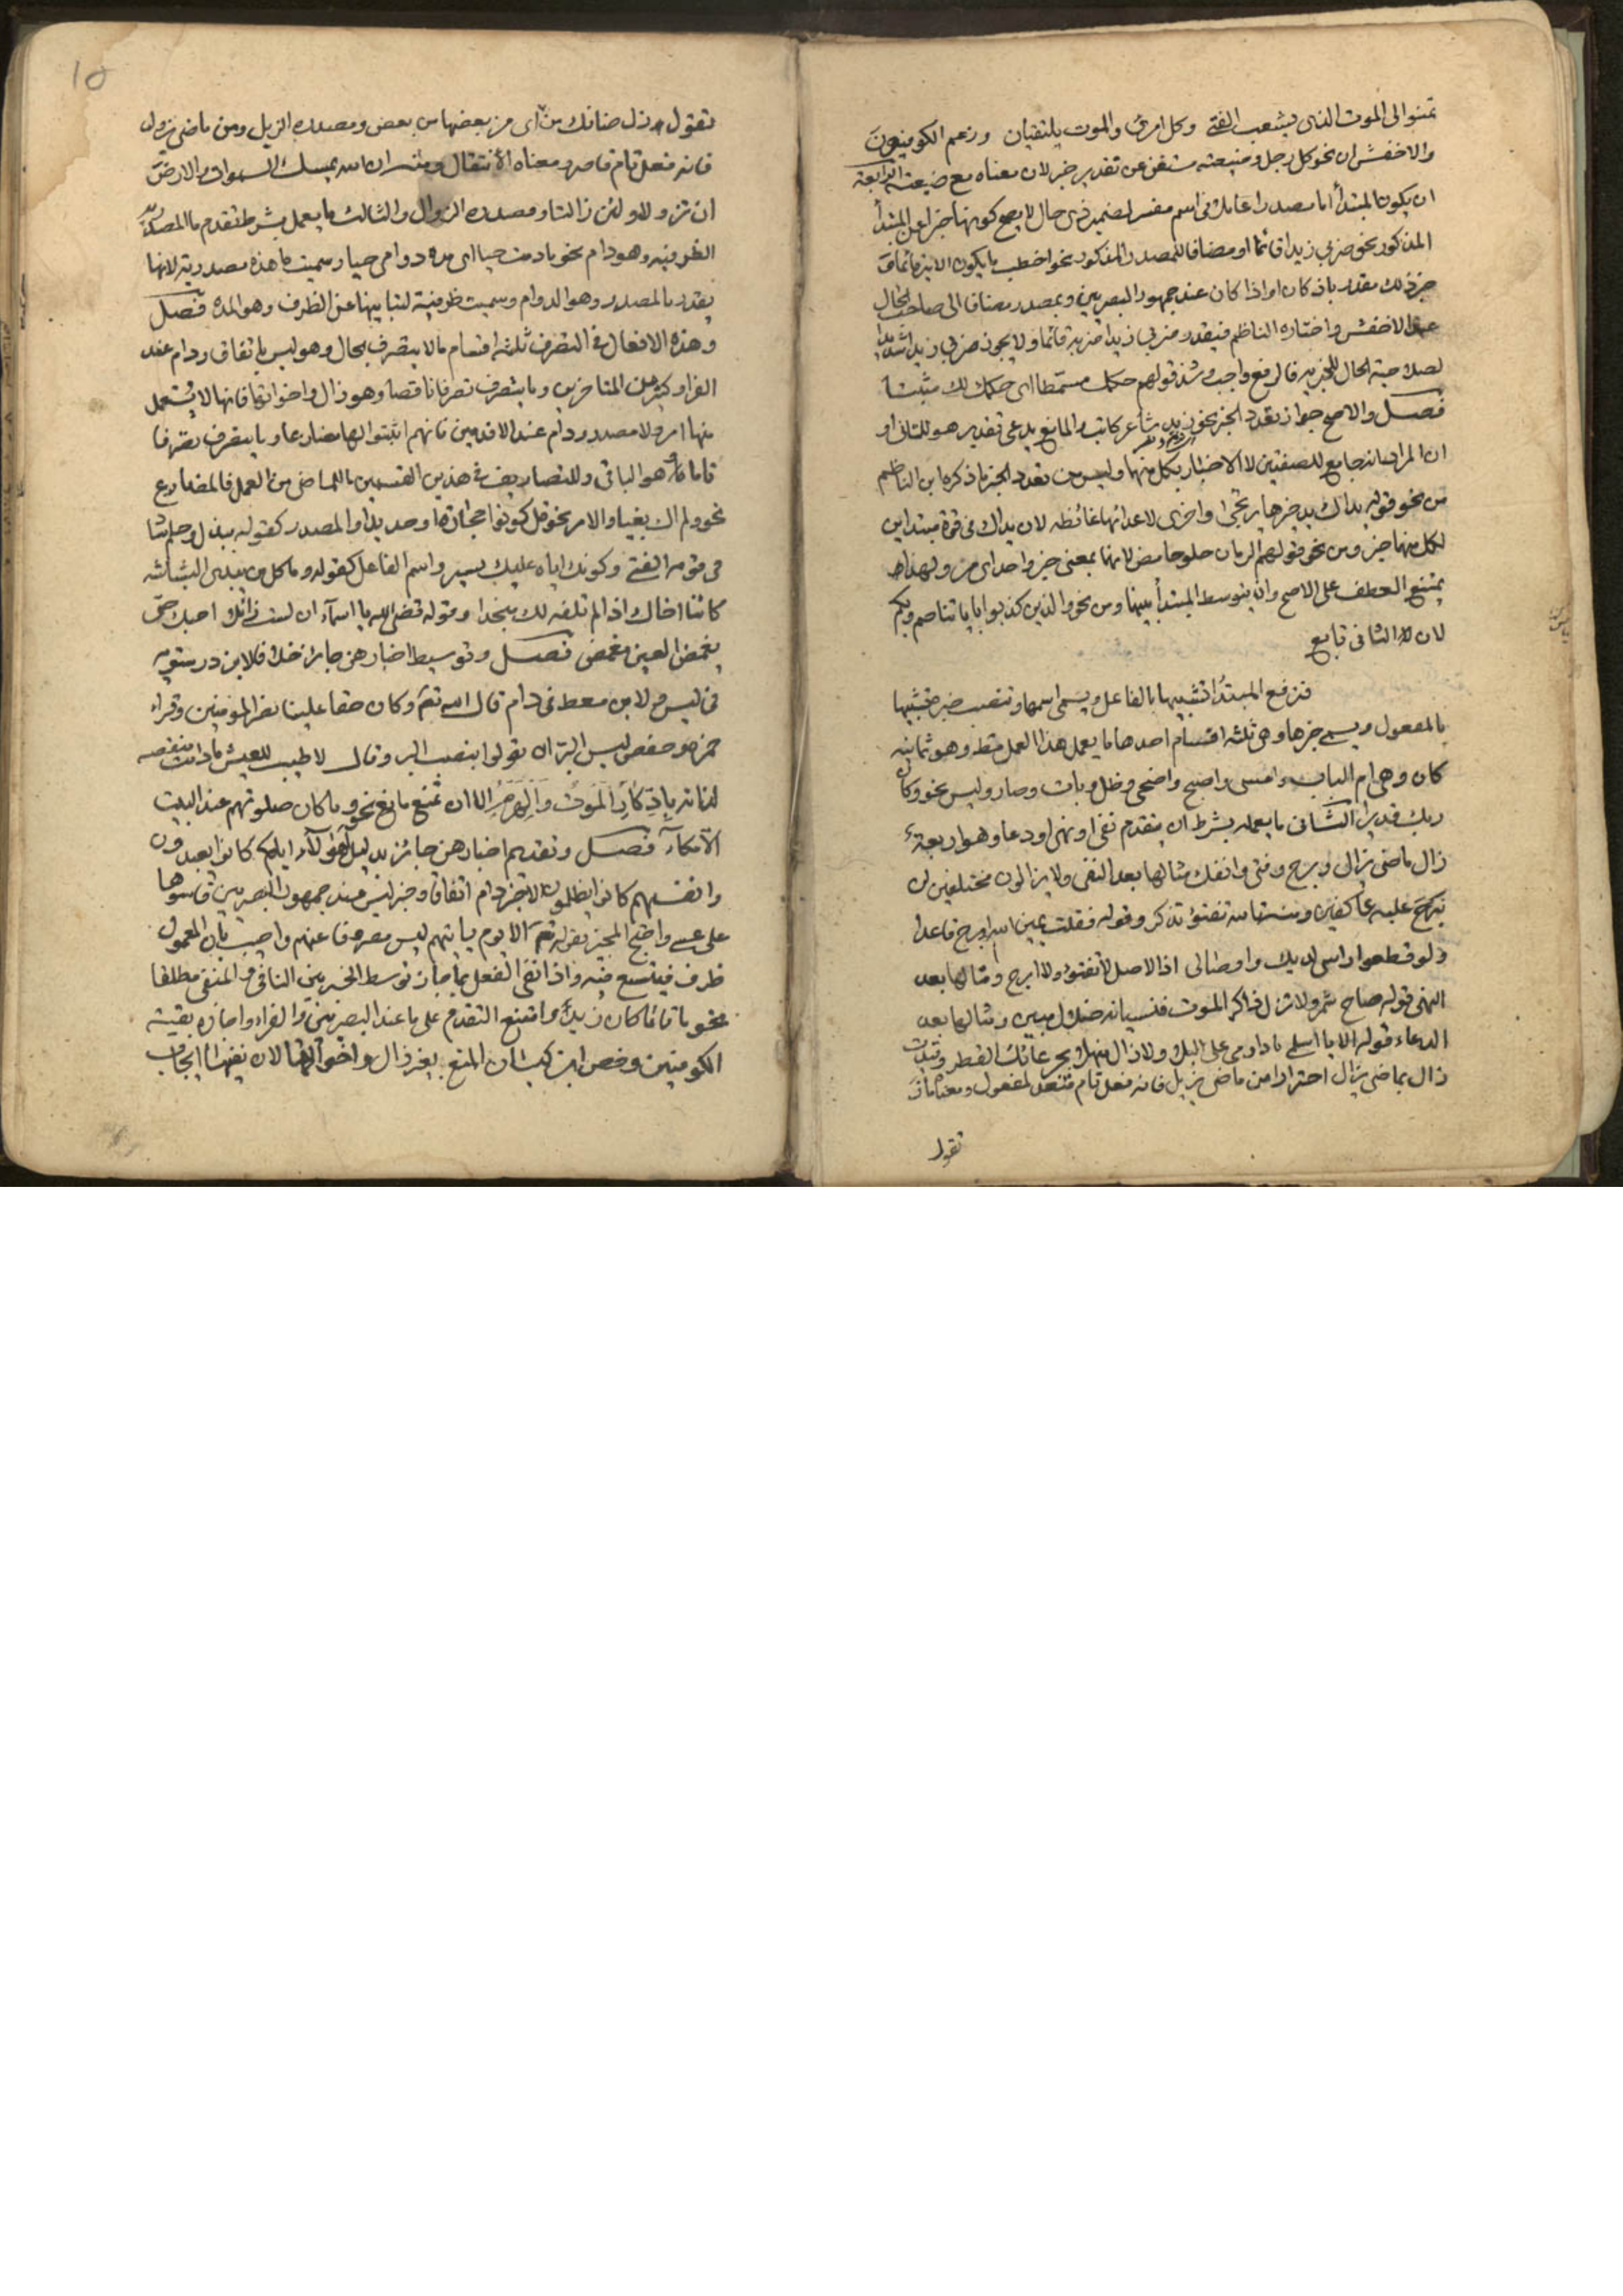 تمنوا لى الموت الذى يشعب الفتى وكل امرئ والموت يلتقيان وزعم الكوفيون
والاخفش ان نحو كل رجل وضيعته مستغن عن تقدير خبر لان معناه مع ضيعته الرابعة
ان يكون المبتدأ اما مصدرا عاملا فى اسم مفسر لضمير ذى حال لا يصح كونها خبرا عن المبتدأ
المذكور نحو ضربي زيدا قائما او مضافا للمصدر المذكور نحو اخطب ما يكون الامير قائما
خبر ذلك مقدر باذ كان او اذا كان عند جمهور البصريين وبمصدر مضاف الى صاحب الحال
عند الاخفش واختاره الناظم فيقدر ضربي زيدا ضربه قائما ولا يجوز ضربي زيدا شديدا
لصلاحية الحال للخبرية فالرفع واجب وشذ قولهم حكمك مسمطا اى حكمك لك مثبتا
فصل والاصح جواز تعدد الخبر نحو زيد شاعر كاتب والمانع يدعى تقدير هو للثانى او
ان المراد انه جامع للصفتين لا الاخبار بكل منها وليس من تعدد الخبر ما ذكره ابن الناظم
من نحو قوله يداك يد خيرها يرتجى واخرى لاعدائها غائظه لان يداك فى قوة مبتداين
لكل منهما خبر ومن نحو قولهم الرمان حلو حامض لانهما بمعنى خبر واحد اى مز ولهذا
يمتنع العطف على الاصح وان يتوسط المبتدأ بينهما ومن نحو والذين كذبوا باياتنا صم وبكم
لان الثانى تابع
فترفع المبتدأ تشبيها بالفاعل ويسمى اسمها وتنصب خبره تشبيها
بالمفعول ويسمى خبرها وهى ثلثه اقسام احدها ما يعمل هذا العمل مطلقا وهو ثمانيه
كان وهى ام الباب وامسى واصبح واضحى وظل وبات وصار وليس نحو وكان
ربك قديرا الثانى ما يعمله بشرط ان يتقدم نفى او نهى او دعا وهو اربعة
زال ماضى يزال وبرح وفتئ وانفك مثالها بعد النفى ولا يزالون مختلفين لن
نبرح عليه عاكفين ومنه تالله تفتؤ تذكر وقوله فقلت يمين الله ابرح قاعدا
ولو قطعوا راسى لديك واوصالى اذ الاصل لا تفتؤ ولا ابرح ومثالها بعد
النهى قوله صاح شمر ولا تزل ذاكر الموت فنسيانه ضلال مبين ومثالها بعد
الدعاء قوله الا يا اسلمى يا دار مى على البلى ولا زال منهلا بجرعائك القطر وقيدت
زال بماضى يزال احترازا من ماضى يزيل فانه فعل تام متعد لمفعول ومعناه ماز
تقول
15
تقول زل ضانك من اى مز بعضها من بعض ومصدره الزيل ومن ماضى يزول
فانه فعل تام قاصر ومعناه الانتقال ومنه ان الله يمسك السموات والارض
ان تزولا ولئن زالتا ومصدره الزوال والثالث ما يعمل بشرط تقدم ما المصدرية
الظرفيه وهو دام نحو ما دمت حيا اى مدة دوامى حيا وسميت ما هذه مصدرية لانها
تقدر بالمصدر وهو الدوام وسميت ظرفية لنيابتها عن الظرف وهو المدة فصل
وهذه الافعال فى التصرف ثلثه اقسام ما لا يتصرف بحال وهو ليس باتفاق ودام عند
الفراء وكثير من المتاخرين وما يتصرف تصرفا ناقصا وهو زال واخواتها فانها لا يستعمل
منها امر ولا مصدر ودام عند الاقدمين فانهم اثبتوا لها مضارعا وما يتصرف تصرفا
تاما وهو الباقى وللتصاريف فى هذين القسمين ما للماضى من العمل فالمضارع
نحو ولم اك بغيا والامر نحو قل كونوا حجارة او حديدا والمصدر كقوله ببذل وحلم ساد
فى قومه الفتى وكونك اياه عليك يسير واسم الفاعل كقوله وما كل من يبدى البشاشه
كائنا اخاك اذا لم تلفه لك منجدا وقوله قضى الله يا اسماء ان لست زائلا احبك حتى
يغمض العين مغمض فصل وتوسيط اخبارهن جايز خلافا لابن درستويه
فى ليس ولابن معط فى دام قال الله تعم وكان حقا علينا نصر المؤمنين وقراء
حمزه وحفص ليس البر ان تولوا بنصب البر وقال لا طيب للعيش ما دامت منغصه
لذاته بادكار الموت والهرم الا ان تمنع مانع نحو وما كان صلوتهم عند البيت
الا مكاء فصل وتقديم اخبارهن جائز بدليل اهؤلاء اياكم كانوا يعبدون
وانفسهم كانوا يظلمون الا خبر دام اتفاقا وخبر ليس عند جمهور البصريين قاسوها
على عسى واحتج المجيز بقوله تعم الا يوم ياتيهم ليس مصروفا عنهم واجيب بان المعمول
ظرف فيتسع فيه واذا نفى الفعل بما جاز توسط الخبر بين النافى والمنفى مطلقا
نحو ما قائما كان زيد وامتنع التقدم على ما عند البصريين والفراء واجازه بقية
الكوفيين وخص ابن كيسان المنع بغير زال واخواتها لان نفيها ايجاب